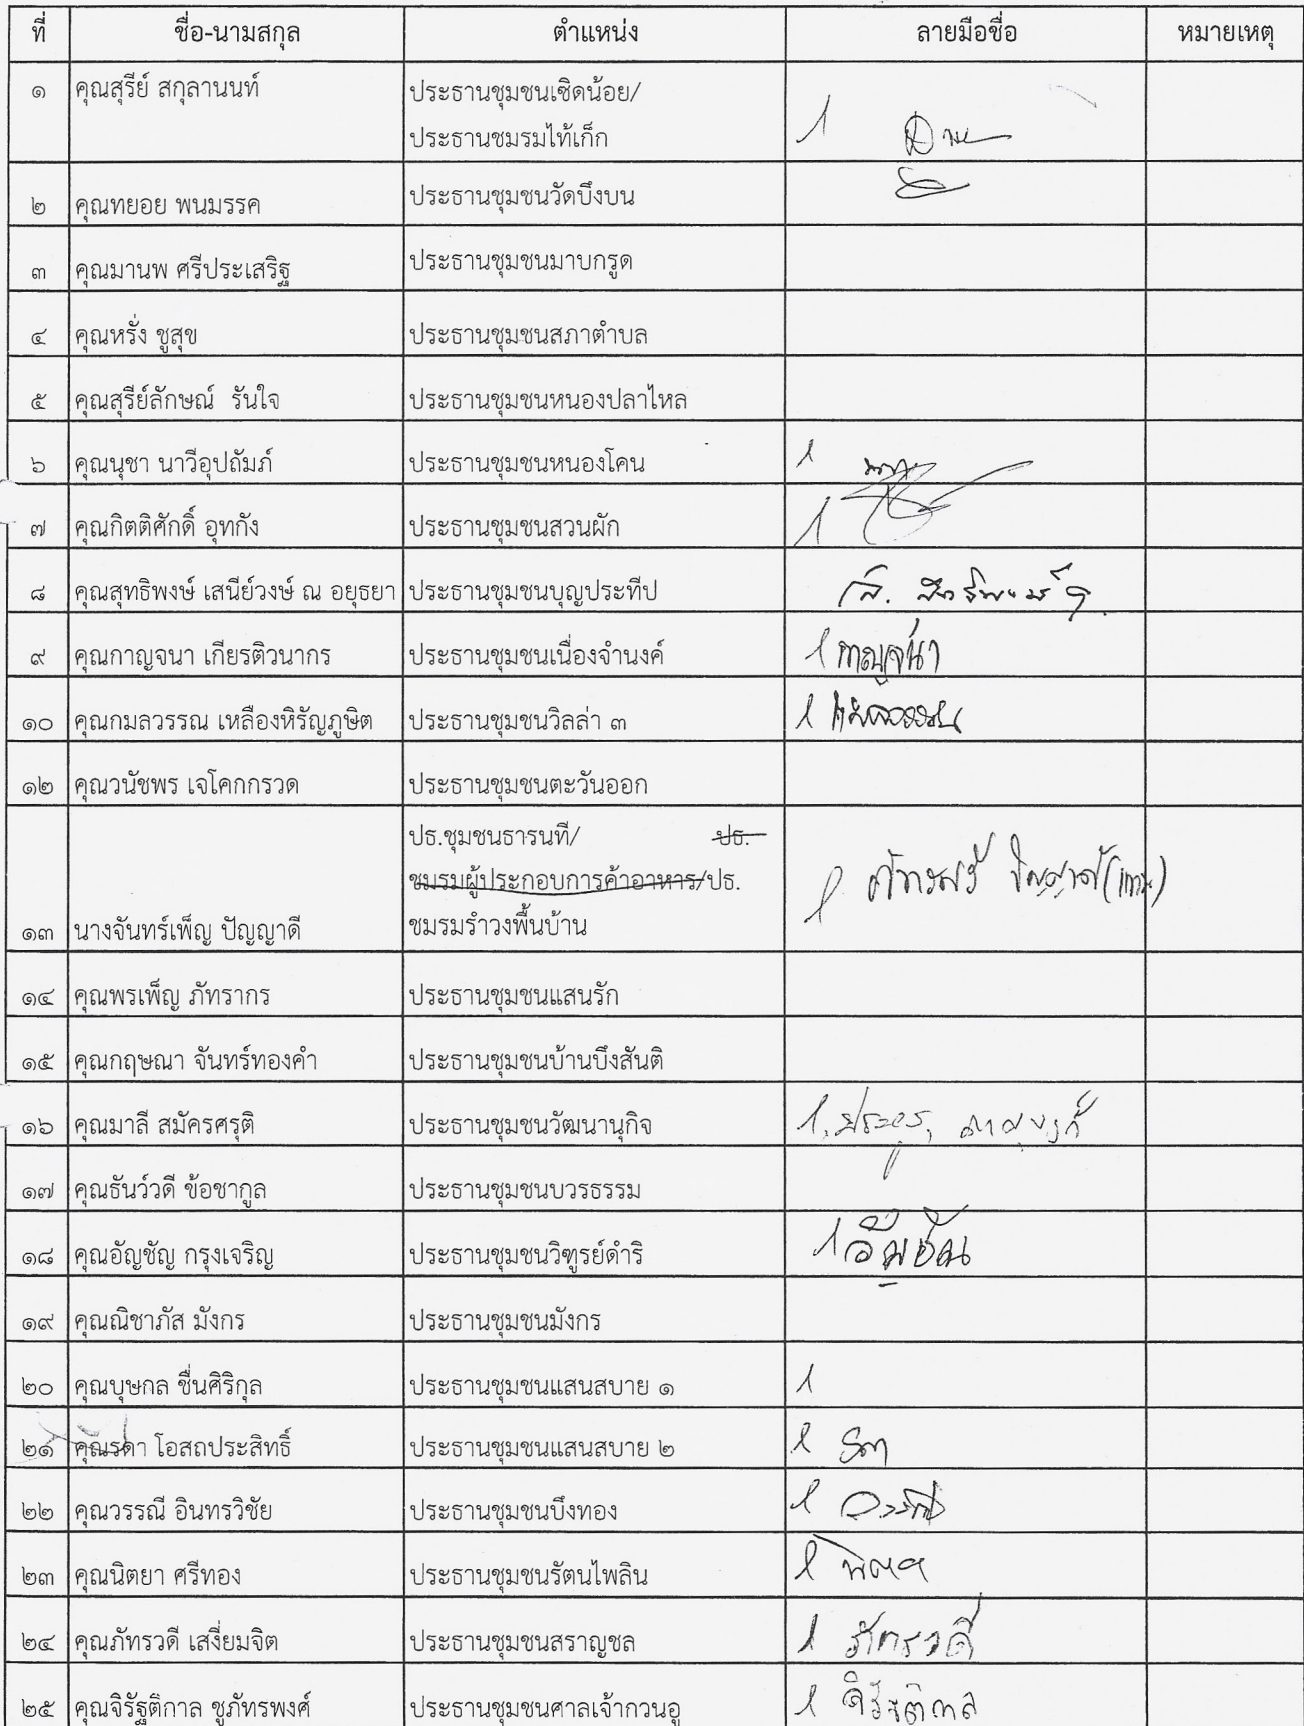 ที่ ชื่อ-นามสกุล ตำแหน่ง ลายมือชื่อ หมายเหตุ
๑ คุณสุรีย์ สกุลานนท์ ประธานชุมชนเชิดน้อย/
ประธานชมรมไท้เก็ก
๒ คุณทยอย พนมรรค ประธานชุมชนวัดบึงบน
๓ คุณมานพ ศรีประเสริฐ ประธานชุมชนมาบกรูด
๔ คุณหรั่ง ชูสุข ประธานชุมชนสภาตำบล
๕ คุณสุรีย์ลักษณ์ รันใจ ประธานชุมชนหนองปลาไหล
๖ คุณนุชา นาวีอุปถัมภ์ ประธานชุมชนหนองโคน
๗ คุณกิตติศักดิ์ อุทกัง ประธานชุมชนสวนผัก
๘ คุณสุทธิพงษ์ เสนีย์วงษ์ ณ อยุธยา ประธานชุมชนบุญประทีป
๙ คุณกาญจนา เกียรติวนากร ประธานชุมชนเนื่องจำนงค์ กาญจนา
๑๐ คุณกมลวรรณ เหลืองหิรัญภูษิต ประธานชุมชนวิลล่า ๓ กมลวรรณ
๑๒ คุณวนัชพร เจโคกกรวด ประธานชุมชนตะวันออก
ปธ.ชุมชนธารนที/ ปธ.
ชมรมผู้ประกอบการค้าอาหาร/ปธ.
๑๓ นางจันทร์เพ็ญ ปัญญาดี ชมรมรำวงพื้นบ้าน
๑๔ คุณพรเพ็ญ ภัทรากร ประธานชุมชนแสนรัก
๑๕ คุณกฤษณา จันทร์ทองคำ ประธานชุมชนบ้านบึงสันติ
๑๖ คุณมาลี สมัครศรุติ ประธานชุมชนวัฒนานุกิจ
๑๗ คุณธันว์วดี ข้อชากูล ประธานชุมชนบวรธรรม
๑๘ คุณอัญชัญ กรุงเจริญ ประธานชุมชนวิฑูรย์ดำริ
๑๙ คุณณิชาภัส มังกร ประธานชุมชนมังกร
๒๐ คุณบุษกล ชื่นศิริกุล ประธานชุมชนแสนสบาย ๑
๒๑ คุณรดา โอสถประสิทธิ์ ประธานชุมชนแสนสบาย ๒ รดา
๒๒ คุณวรรณี อินทรวิชัย ประธานชุมชนบึงทอง วรรณี
๒๓ คุณนิตยา ศรีทอง ประธานชุมชนรัตนไพลิน
๒๔ คุณภัทรวดี เสงี่ยมจิต ประธานชุมชนสราญชล ภัทรวดี
๒๕ คุณจิรัฐติกาล ชูภัทรพงศ์ ประธานชุมชนศาลเจ้ากวนอู จิรัฐติกาล